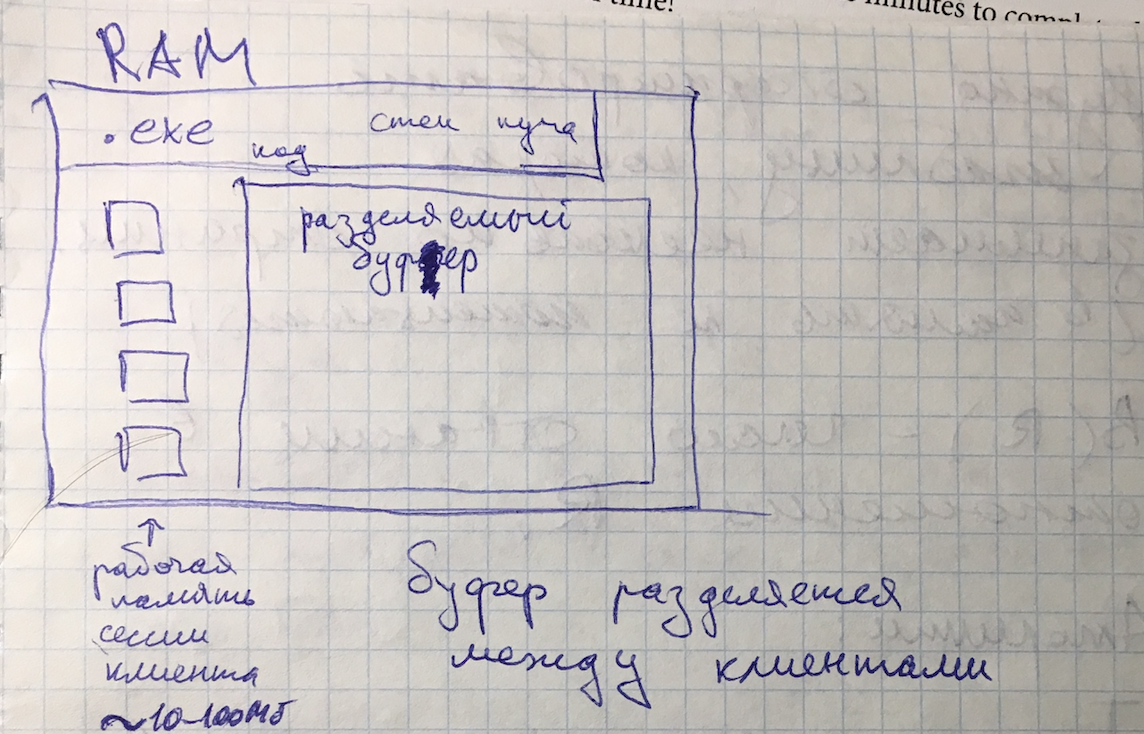 time!
minutes to
RAM
.exe код стек куча
разделяемый
буфер
рабочая
память
сессии
клиента
~10-100Мб
буфер разделяется
между клиентами